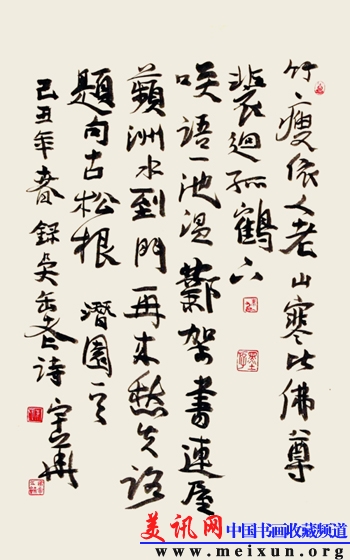 竹瘦依人老山寒比佛尊
裵迴孤鶴下
咲語一池温鄴架書連屋
蘋洲水到門再來愁失路
題向古松根 潛園
己丑年春録吴缶老詩
美讯网 中国书画收藏频道
www.meixun.org